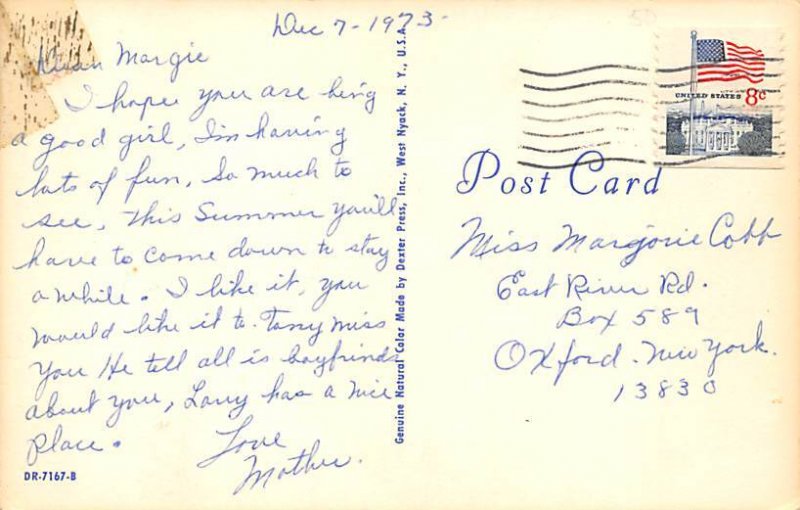 Dec 7-1973
Dear Margie
I hope you are being
a good girl, I'm having
lots of fun, So much to
see, This Summer you'll
have to come down to stay
a while. I like it, you
would like it to. Tony miss
you He tell all is boyfriends
about you, Larry has a nice
place.
Love
Mother.
DR-7167-B
Genuine Natural Color Made by Dexter Press, Inc., West Nyack, N. Y., U.S.A.
50
UNITED STATES 8c
Post Card
Miss Marjorie Cobb
East River Rd.
Box 589
Oxford. New York.
13830